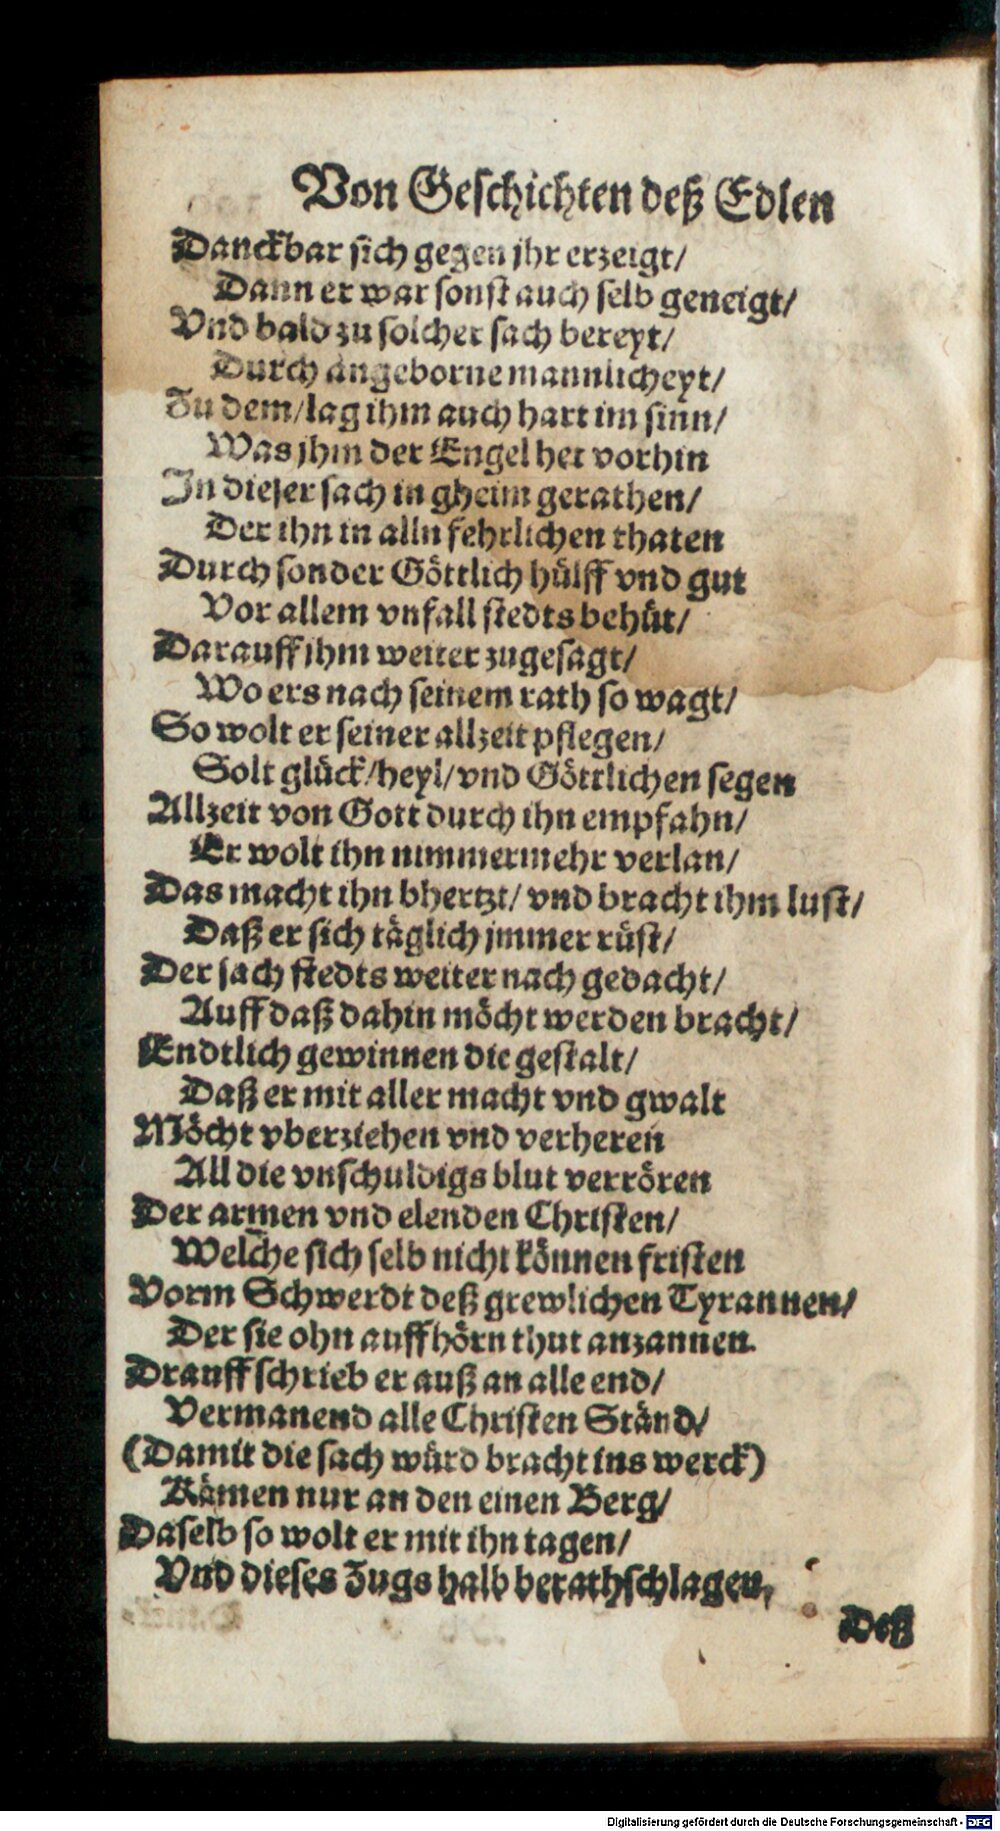 Von Geschichten deß Edlen
Danckbar sich gegen jhr erzeigt/
Dann er war sonst auch selb geneigt/
Vnd bald zu solcher sach bereyt/
Durch angeborne mannlicheyt/
Zu dem/lag ihm auch hart im sinn/
Was jhm der Engel het vorhin
In dieser sach in gheim gerathen/
Der ihn in alln fehrlichen thaten
Durch sonder Göttlich hülff vnd gut
Vor allem vnfall stedts behüt/
Darauff jhm weiter zugesagt/
Wo ers nach seinem rath so wagt/
So wolt er seiner allzeit pflegen/
Solt glück/heyl/vnd Göttlichen segen
Allzeit von Gott durch ihn empfahn/
Er wolt ihn nimmermehr verlan/
Das macht ihn bhertzt/ vnd bracht ihm lust/
Daß er sich täglich jmmer rüst/
Der sach stedts weiter nach gedacht/
Auff daß dahin möcht werden bracht/
Endtlich gewinnen die gestalt/
Daß er mit aller macht vnd gwalt
Möcht vberziehen vnd verheren
All die vnschuldigs blut verrören
Der armen vnd elenden Christen/
Welche sich selb nicht können fristen
Vorm Schwerdt deß grewlichen Tyrannen/
Der sie ohn auffhörn thut anzannen.
Drauff schrieb er auß an alle end/
Vermanend alle Christen Ständ/
(Damit die sach würd bracht ins werck)
Kämen nur an den einen Berg/
Daselb so wolt er mit ihn tagen/
Vnd dieses Zugs halb berathschlagen,
Deß
Digitalisierung gefördert durch die Deutsche Forschungsgemeinschaft - DFG